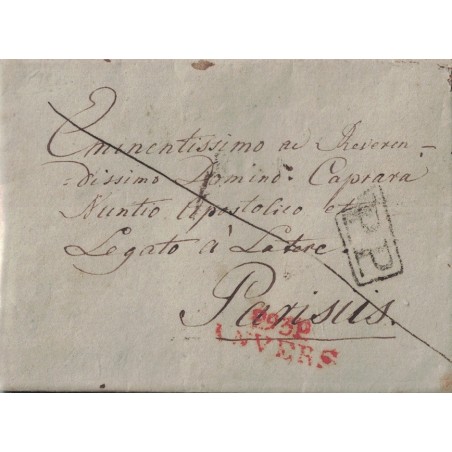 Eminentissimo ac Reveren-
dissimo Domino Caprara
Nuntio Apostolico et
Legato à Latere
Parisiis.
PP
P93P
ANVERS